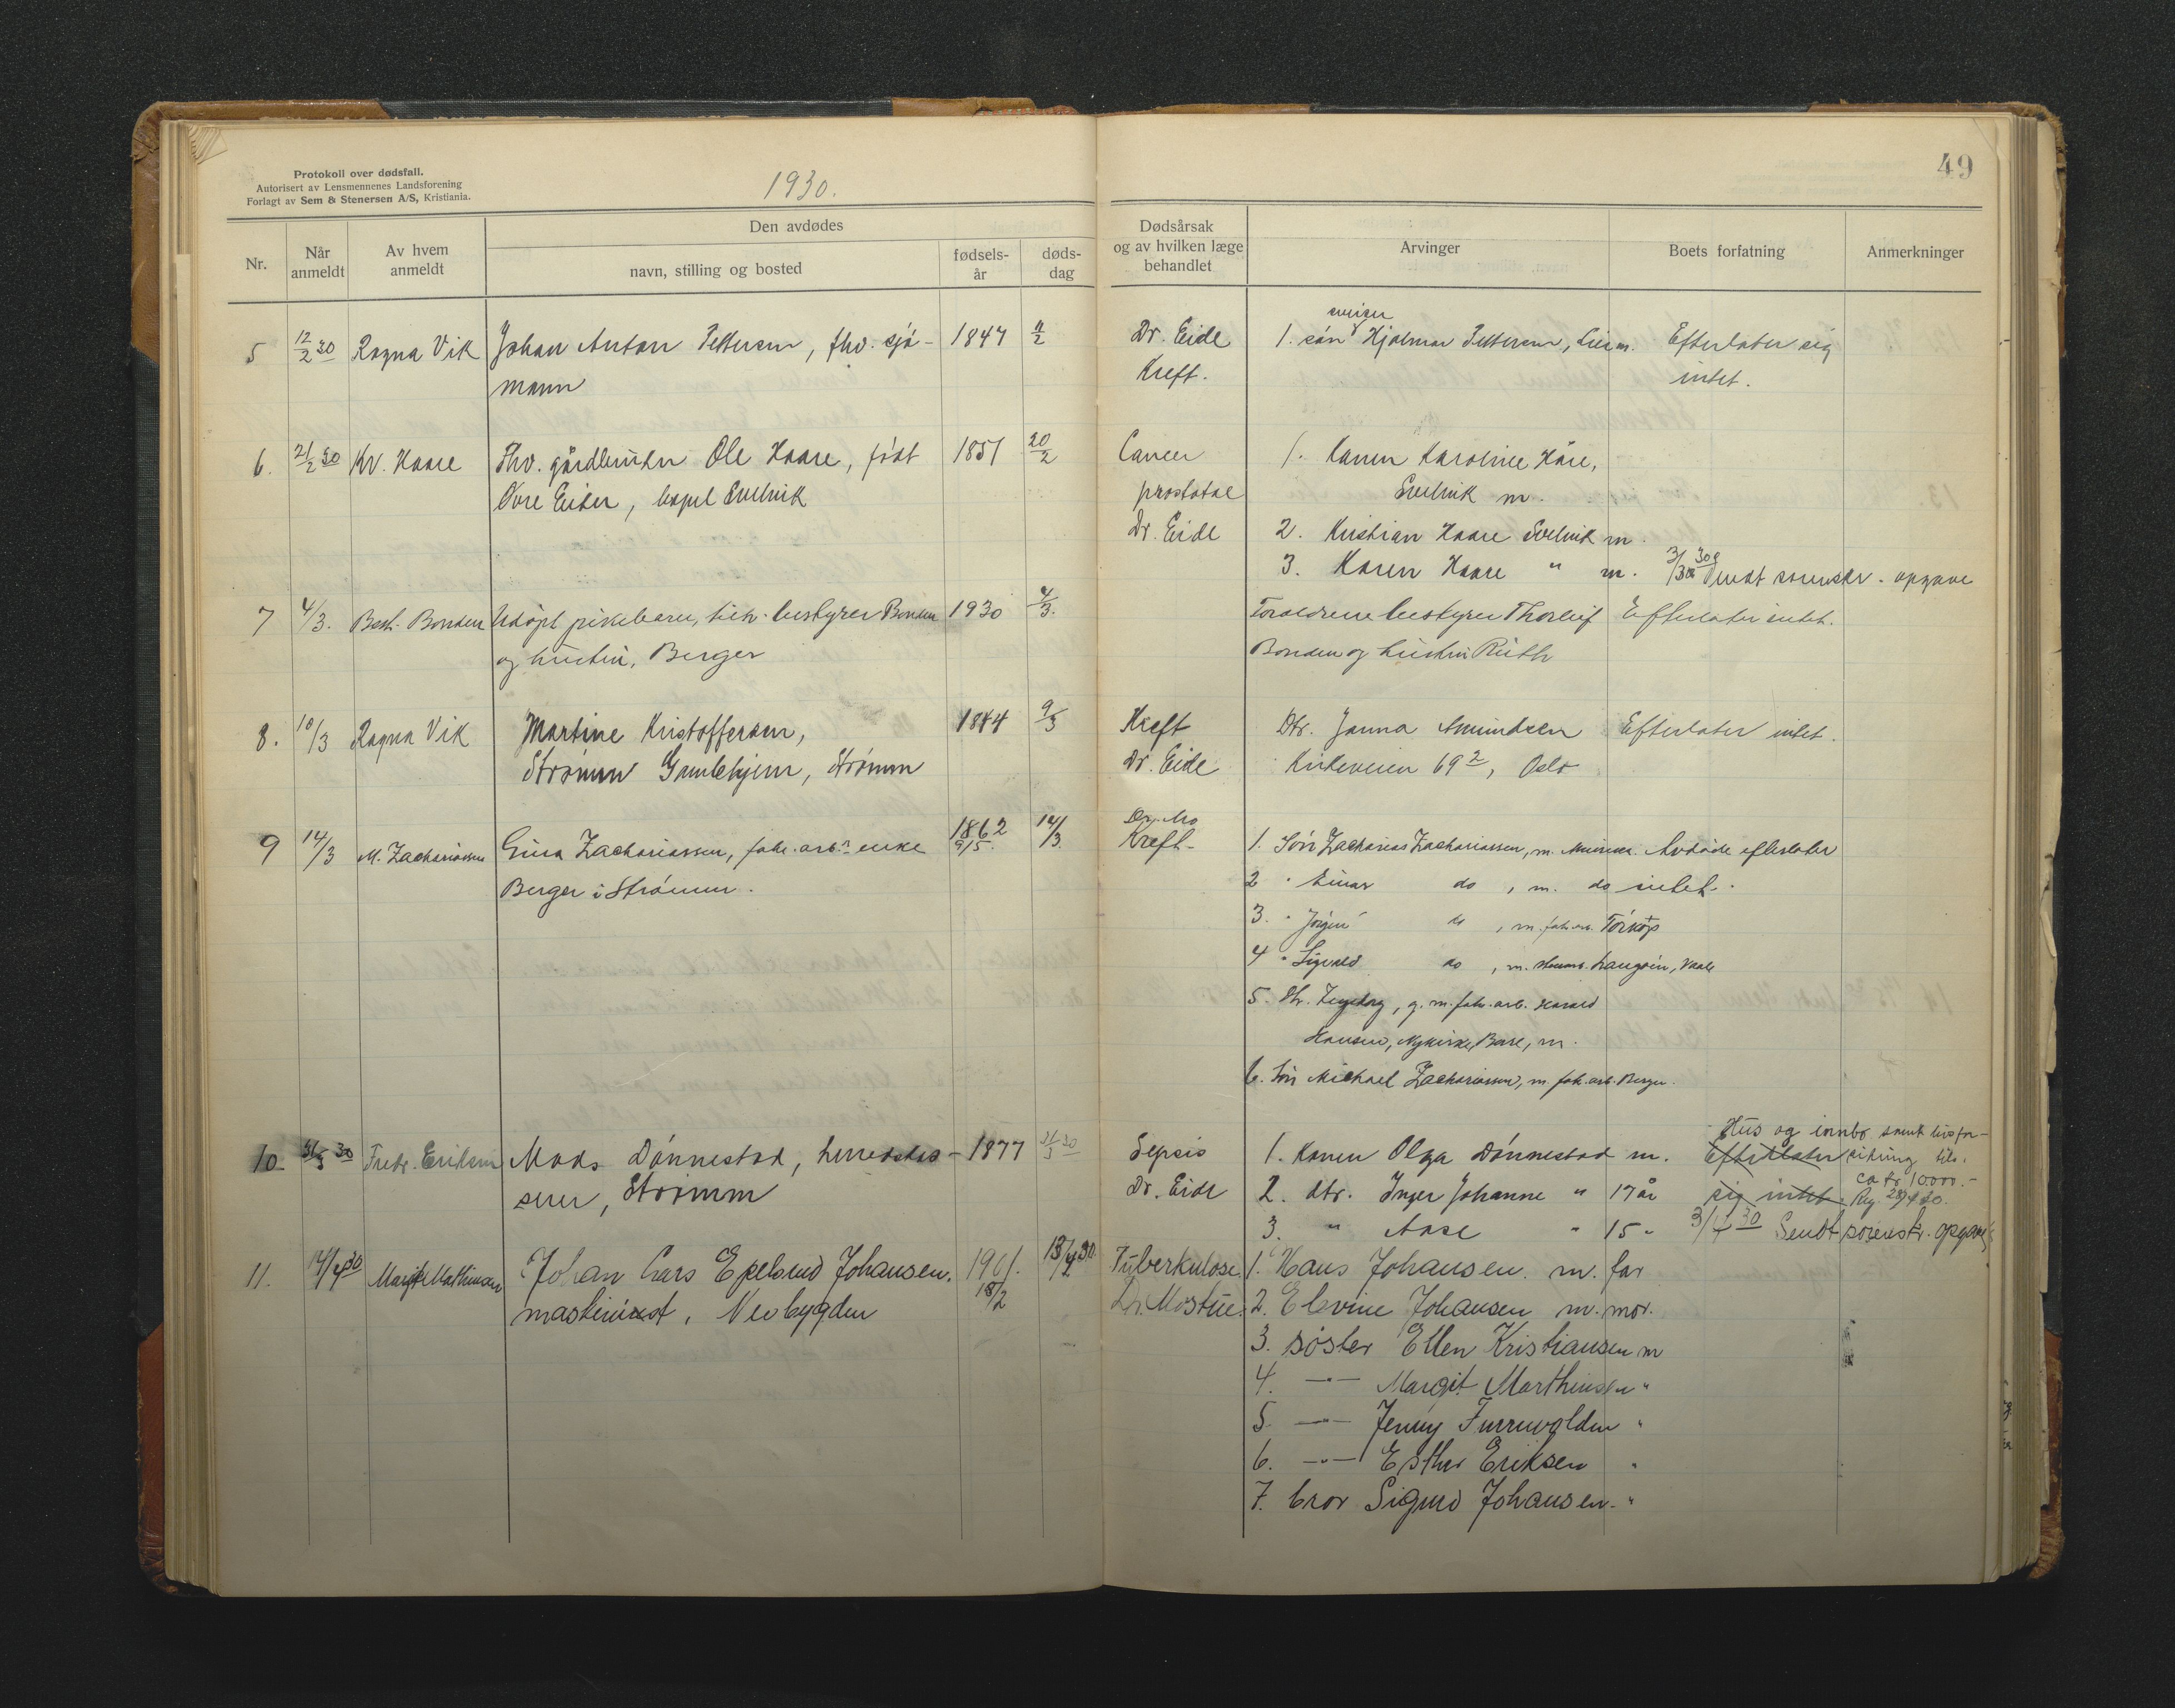 Protokoll over dødsfall.
Autorisert av Lensmennenes Landsforening
Forlagt av Sem & Stenersen A/S, Kristiania.
1930.
49
Nr.
Når anmeldt
Av hvem anmeldt
Den avdødes
navn, stilling og bosted
fødsels-år
døds-dag
Dødsårsak og av hvilken læge behandlet
Arvinger
Boets forfatning
Anmerkninger
5 12/2 30 Ragna Vik Johan Anton Pettersen, fhv. sjø- 1847 11/2 Dr. Eide 1. søn Hjalmar Pettersen, Lier m. Efterlater sig
mann Kreft. intet.
6. 21/2 30 Kr. Haare Fhv. gårdbruker Ole Haare, født 1851 20/2 Cancer 1. Konen Karoline Håre,
Øvre Eiker, bopel Svelvik prostatae Svelvik m.
Dr. Eide 2. Kristian Haare Svelvik m.
3. Karen Haare " m. Sendt sorenskr. opgave
7 4/3. Best. Bonden Udøpt pikebarn, tilh. bestyrer Bonden 1930 4/3. Foreldrene bestyrer Thorleif Efterlater intet.
og hustru, Berger Bonden og hustru Ruth
8. 10/3 Ragna Vik Martine Kristoffersen, 1844 9/3 Kreft Dtr. Janna Amundsen Efterlater intet.
Strømm Gamlehjem, Strømm Dr. Eide Kirkeveien 69 2, Oslo
9 14/3 M. Zachariassen Gina Zachariassen, fabr. arb. enke 1862 9/5. 14/3. Dr. Mo Kreft. 1. Søn Zacharias Zachariassen, m. Avdøde efterlater
Berger i Strømm. 2 " Einar do, m. do intet.
3. " Jørgen do, m. fabr. arb.
4 " Sigvald do, m.
5. Dtr. , g. m. fabr. arb. Harald
Hansen, Nykirke, Borre, m.
6. Søn Michael Zachariassen, m. fab. arb. Berger.
10. 31/3 30 Fredr. Eriksen Mads Dønnestad, herredskas- 1877 31/3 30 Sepsis 1. Konen Olga Dønnestad m. Efterlater Hus og innbo samt livsfor-
serer, Strømm Dr. Eide 2. dtr. Inger Johanne " 17 år sig intet. sikring tils. ca kr. 10000.- Reg. 28/4 30.
3. " Aase " 15 " 3/4 30 Sendt sorenskr. opgave
11. 14/4 30 Margit Marthinsen Johan Lars Epelund Johansen. 1901. 18/2 13/4 30. Tuberkulose. 1. Hans Johansen. m. far
maskinist, Nebygden Dr. Mostue. 2. Elvine Johansen m. mor.
3. søster Ellen Kristiansen m
4. —"— Margit Marthinsen "
5. —"— Jenny Furuvolden "
6. —"— Esther Eriksen "
7. bror Sigurd Johansen. "